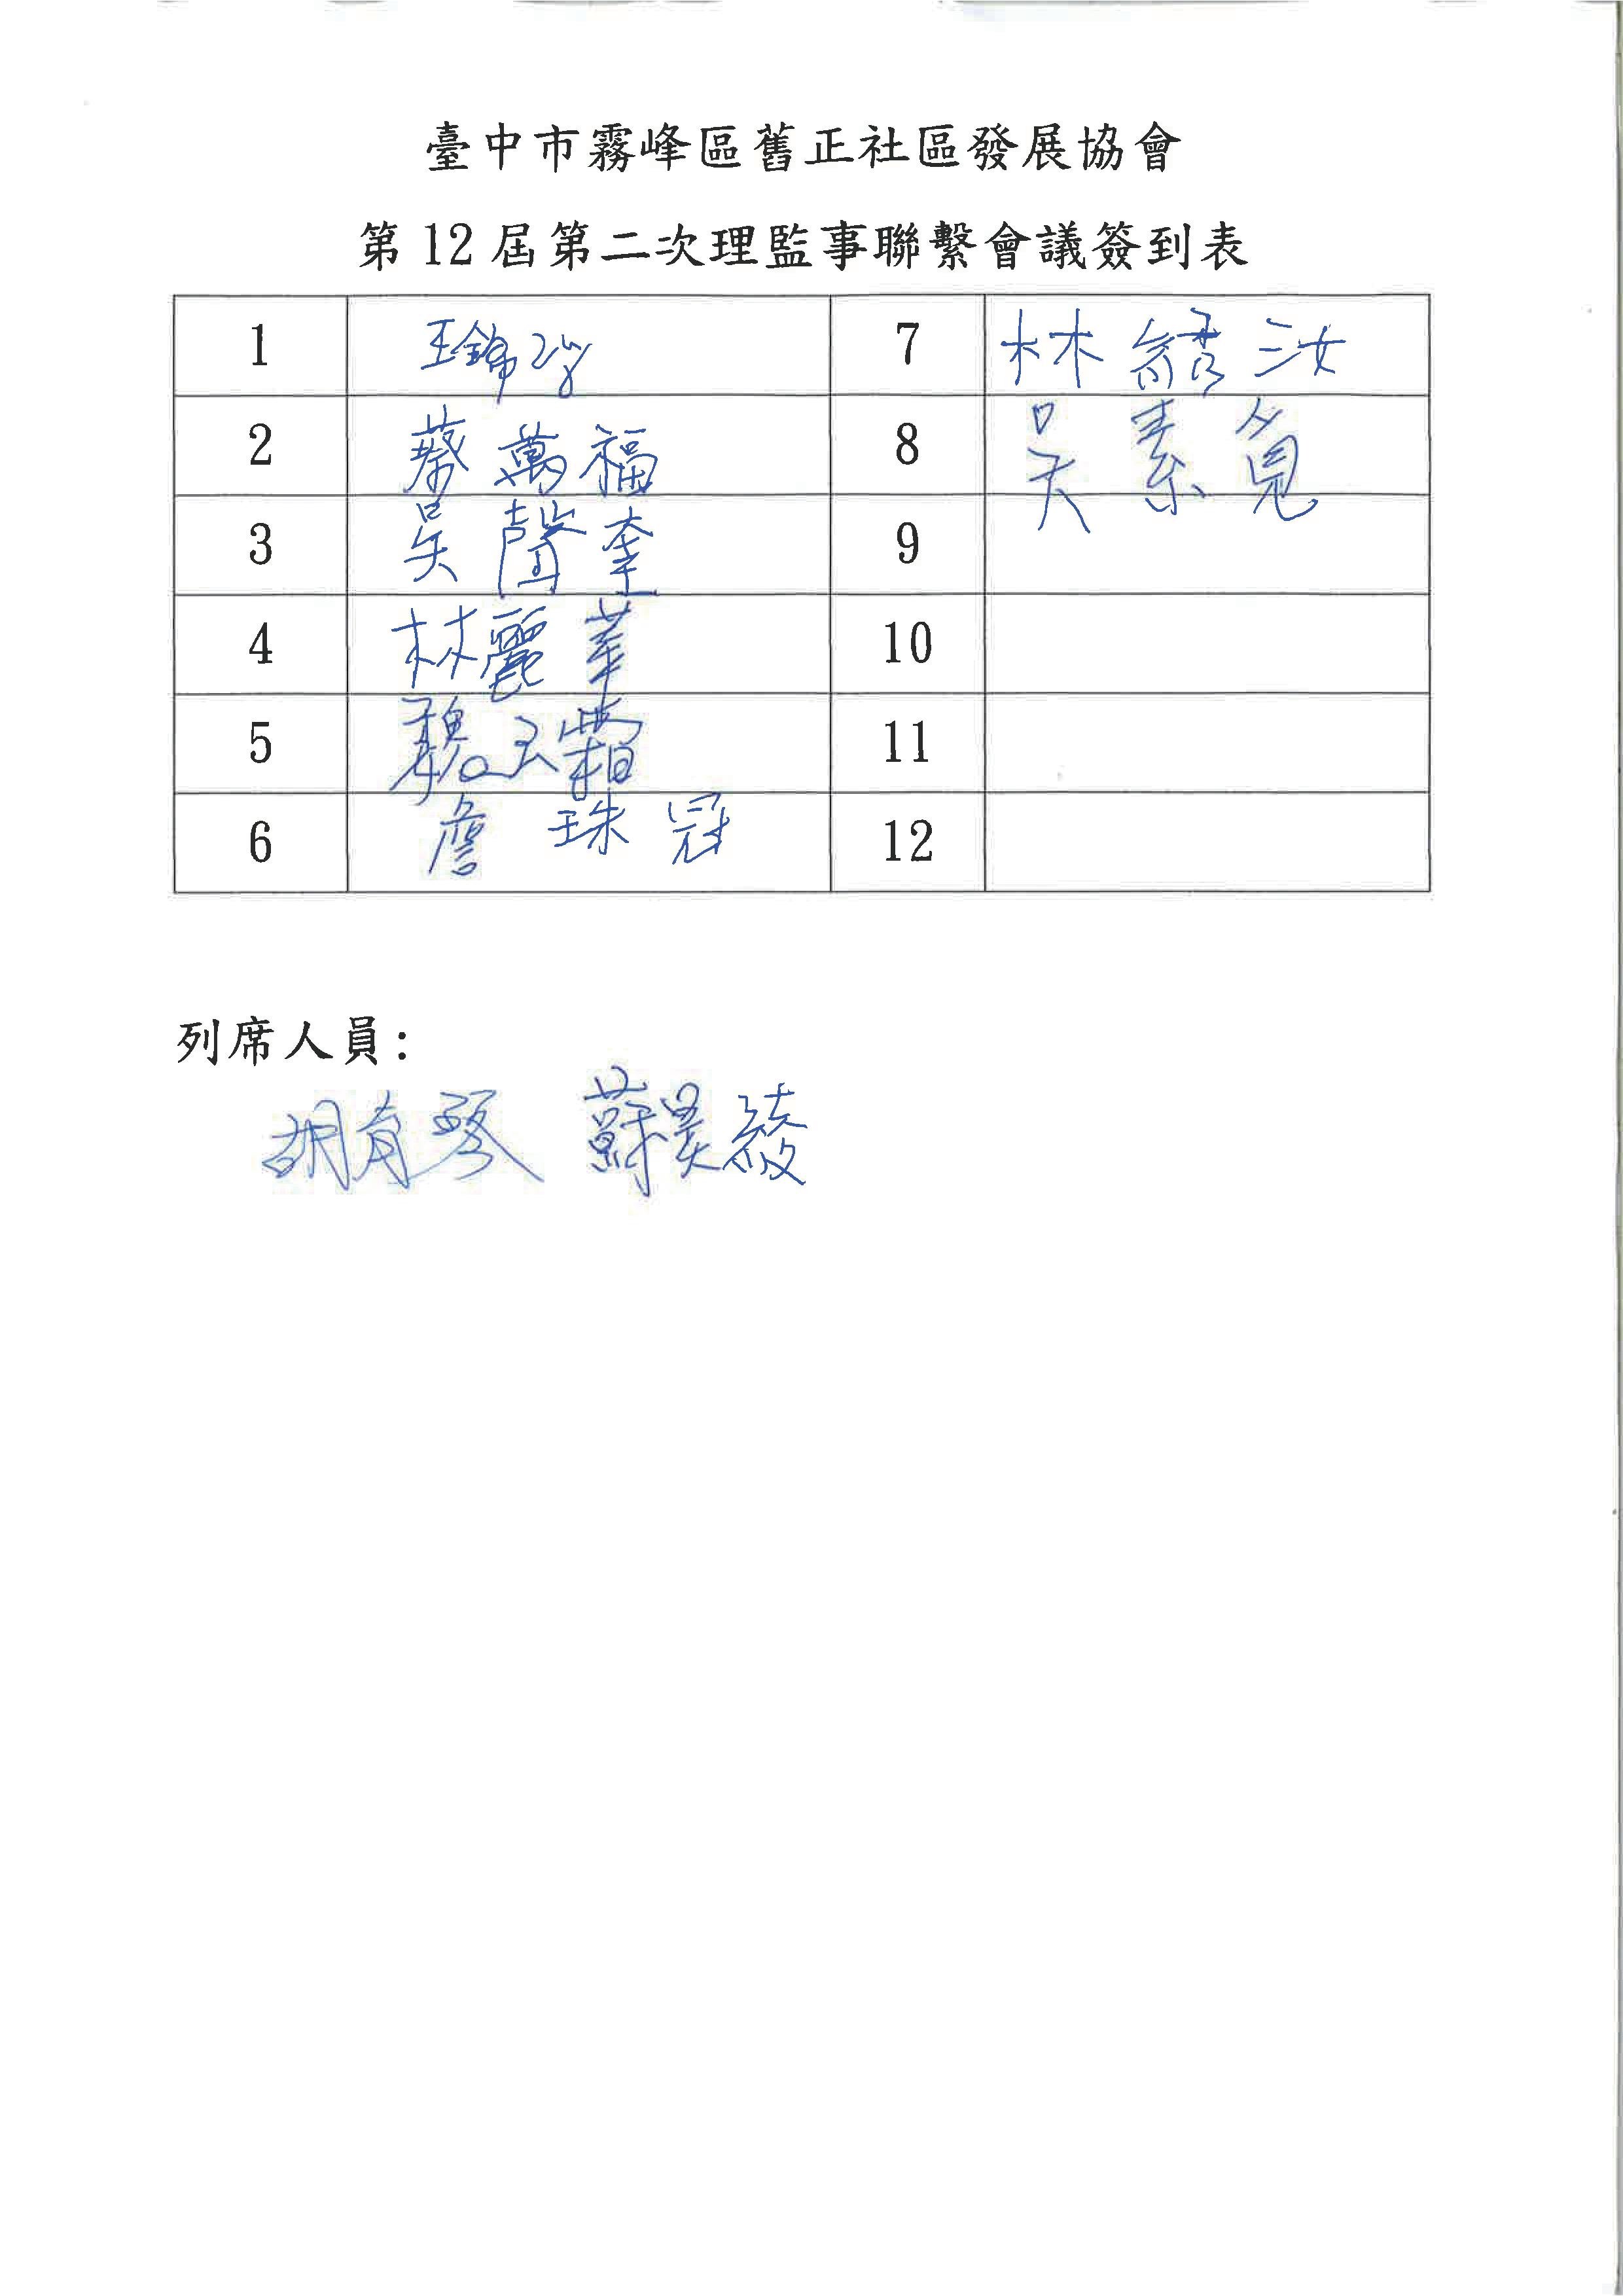 臺中市霧峰區舊正社區發展協會
第12屆第二次理監事聯繫會議簽到表
1 王錦 7 林綉汝
2 蔡萬福 8 吳素
3 吳聲奎 9
4 林麗華 10
5 魏玉霜 11
6 詹珠冠 12
列席人員:
胡育琴 蘇昊綾